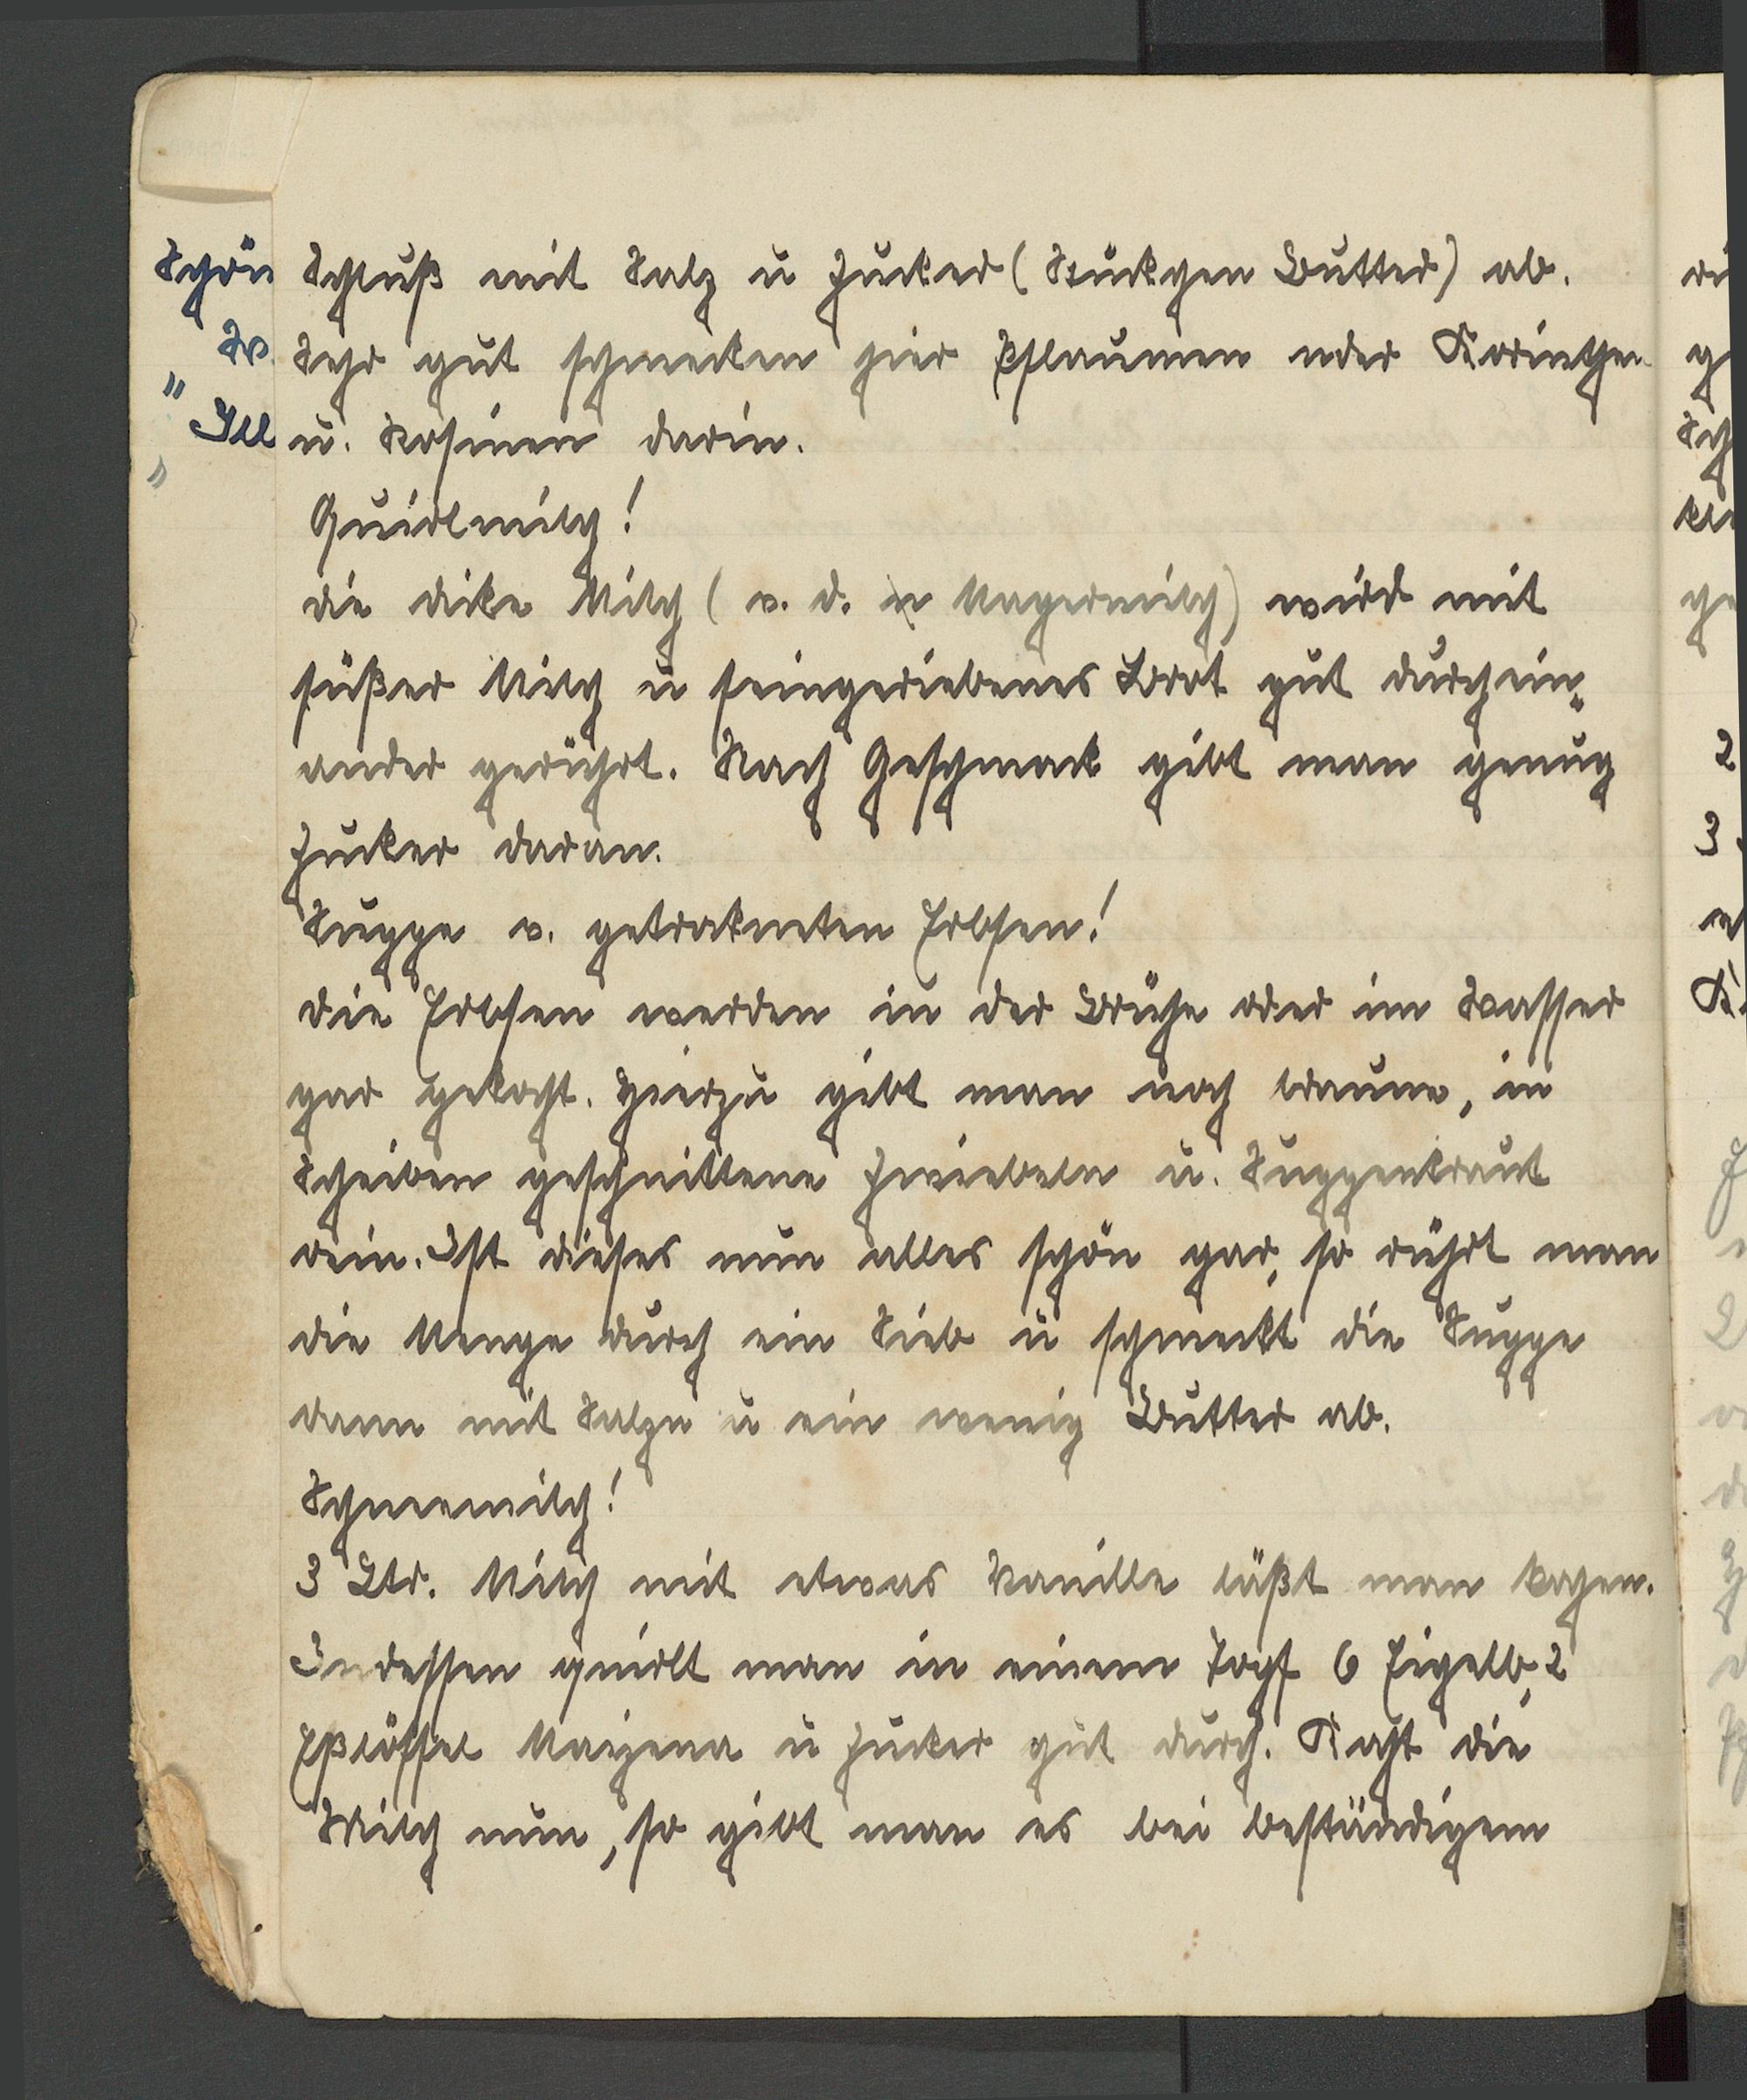 Schluß mit Salz u Zucker (Stückchen Butter) ab.
Sehr gut schmecken hier Pflaumen oder Korinthen
u. Rosinen darin.
Quirlmilch!
die dicke Milch (v. d. Magermilch) wird mit
süßer Milch u feingeriebenes Brot gut durchein-
ander gerührt. Nach Geschmack gibt man genug
Zucker daran.
Suppe v. getrokneten Erbsen!
die Erbsen werden in der Brühe oder im Wasser
gar gekocht. Hierzu gibt man noch braune, in
Scheiben geschnittene Zwiebeln u. Suppenkraut
rein. Ist dieses nun alles schön gar, so rührt man
die Menge durch ein Sieb u schmeckt die Suppe
dann mit Salze u ein wenig Butter ab.
Schneemilch!
3 Ltr. Milch mit etwas Vanille läßt man kochen.
Indessen quirlt man in einem Topf 6 Eigelb, 2
Eßlöffel Maizena u Zucker gut durch. Kocht die
Milch nun, so gibt man es bei beständigem
Schön